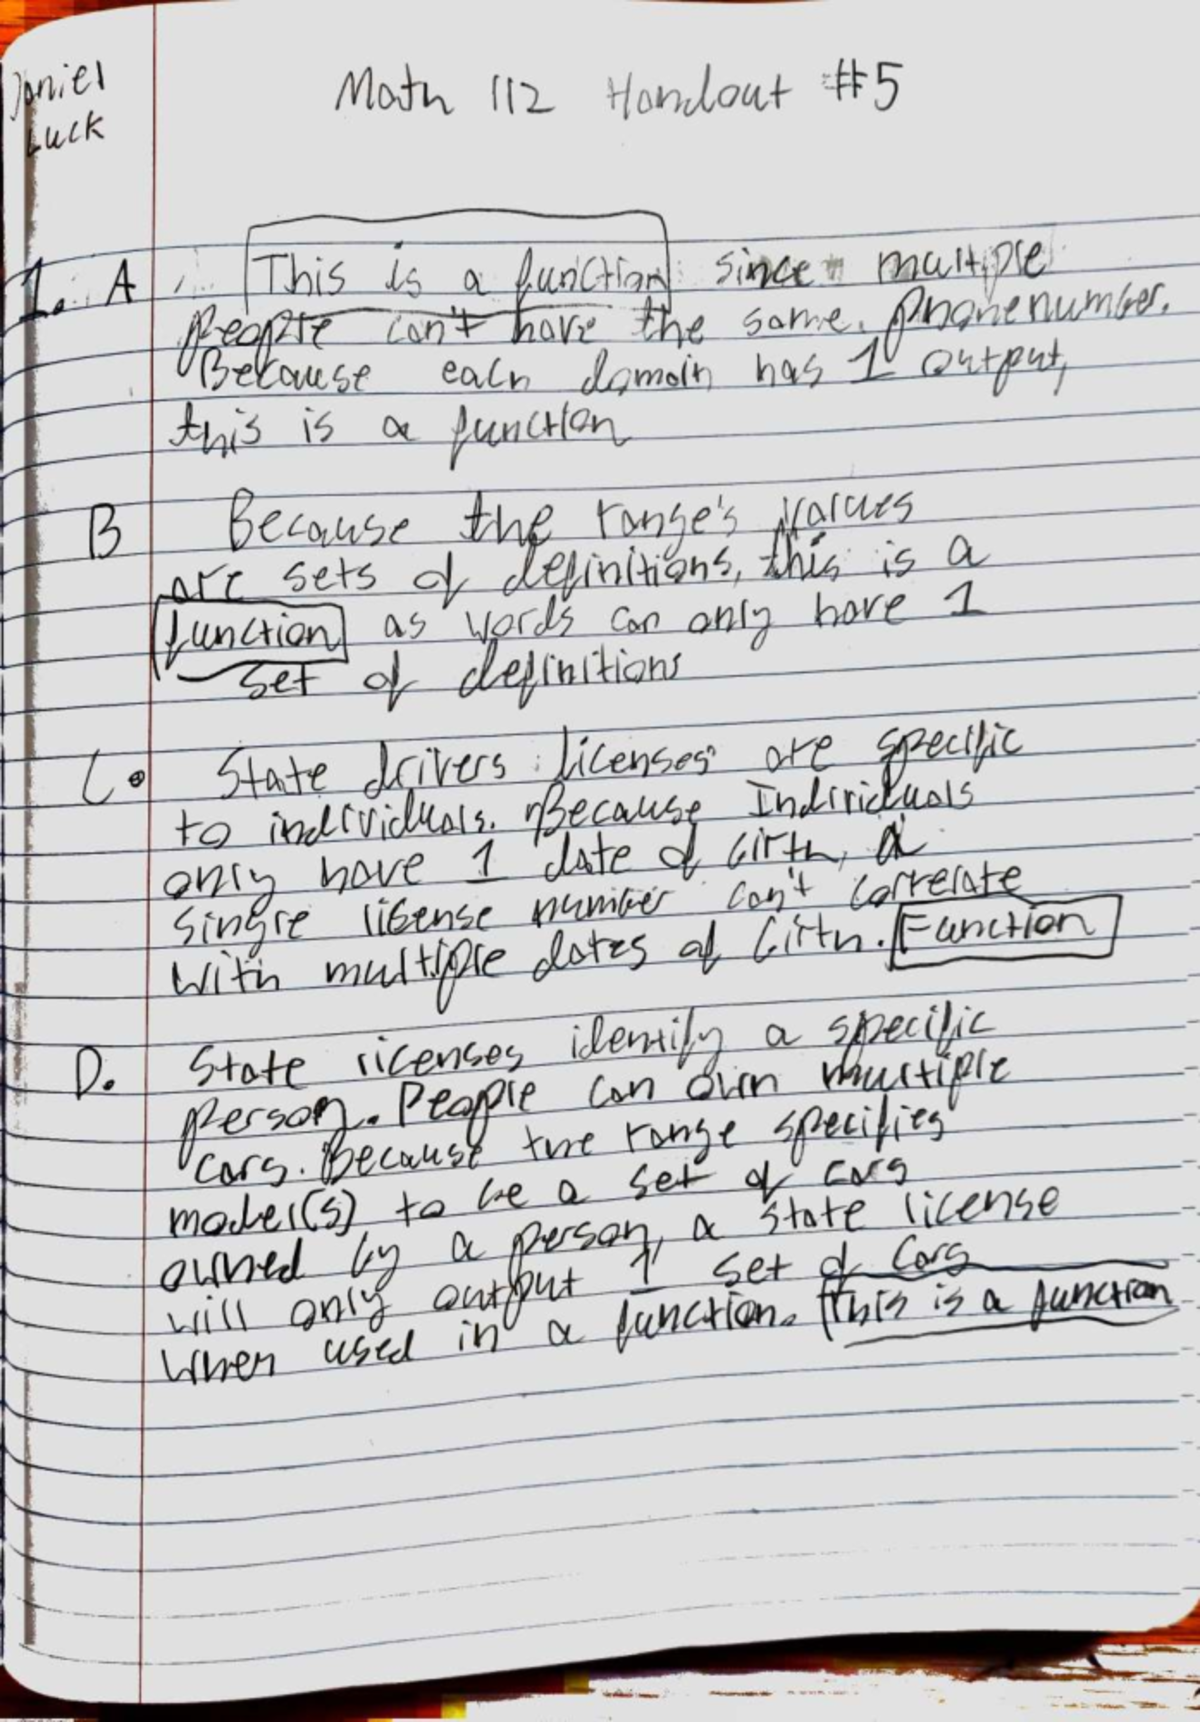 Daniel
Luck
Math 112 Handout #5
1. A This is a function since multiple
people can't have the same. phonenumber.
Because each domain has 1 output,
this is a function
B Because the range's values
are sets of definitions, this is a
function as words can only have 1
set of definitions
C. State drivers licenses are specific
to individuals. Because Individuals
only have 1 date of birth, a
single lisense number can't correlate
with multiple dates of birth. Function
D. State licenses identify a specific
person. People can own multiple
cars. Because the range specifies
model(s) to be a set of cars
owned by a person, a state license
will only output 1 set of cars
when used in a function. This is a function